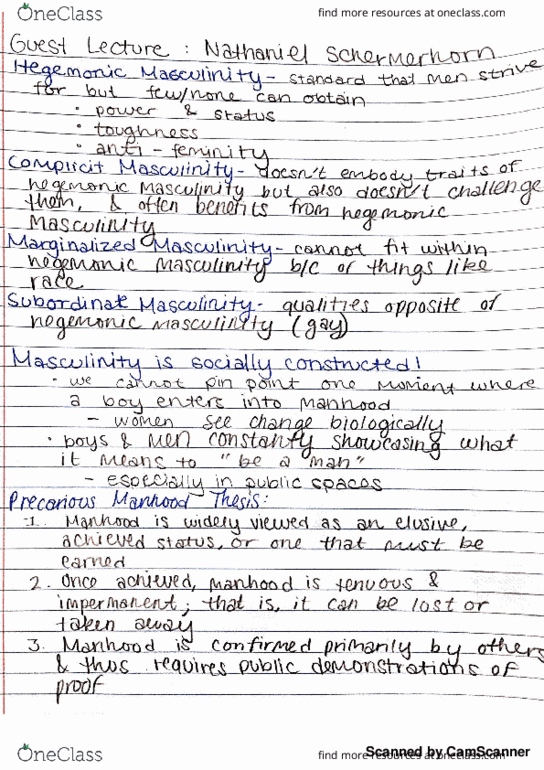 OneClass
find more resources at oneclass.com
Guest Lecture : Nathaniel Schermerhorn
Hegemonic Masculinity - standard that men strive
for but few/none can obtain
• power & status
• toughness
• anti - feminity
Complicit Masculinity - doesn't embody traits of
hegemonic masculinity but also doesn't challenge
them, & often benefits from hegemonic
Masculinity
Marginalized Masculinity - cannot fit within
hegemonic masculinity b/c of things like
race
Subordinate Masculinity - qualities opposite of
hegemonic masculinity (gay)
Masculinity is socially constructed!
• we cannot pin point one moment where
a boy enters into manhood
- women see change biologically
• boys & men constantly showcasing what
it means to "be a man"
- especially in public spaces
Precarious Manhood Thesis:
1. Manhood is widely viewed as an elusive,
achieved status, or one that must be
earned
2. Once achieved, manhood is tenuous &
impermanent; that is, it can be lost or
taken away
3. Manhood is confirmed primarily by others
& thus requires public demonstrations of
proof
OneClass
find more resources at oneclass.com
Scanned by CamScanner